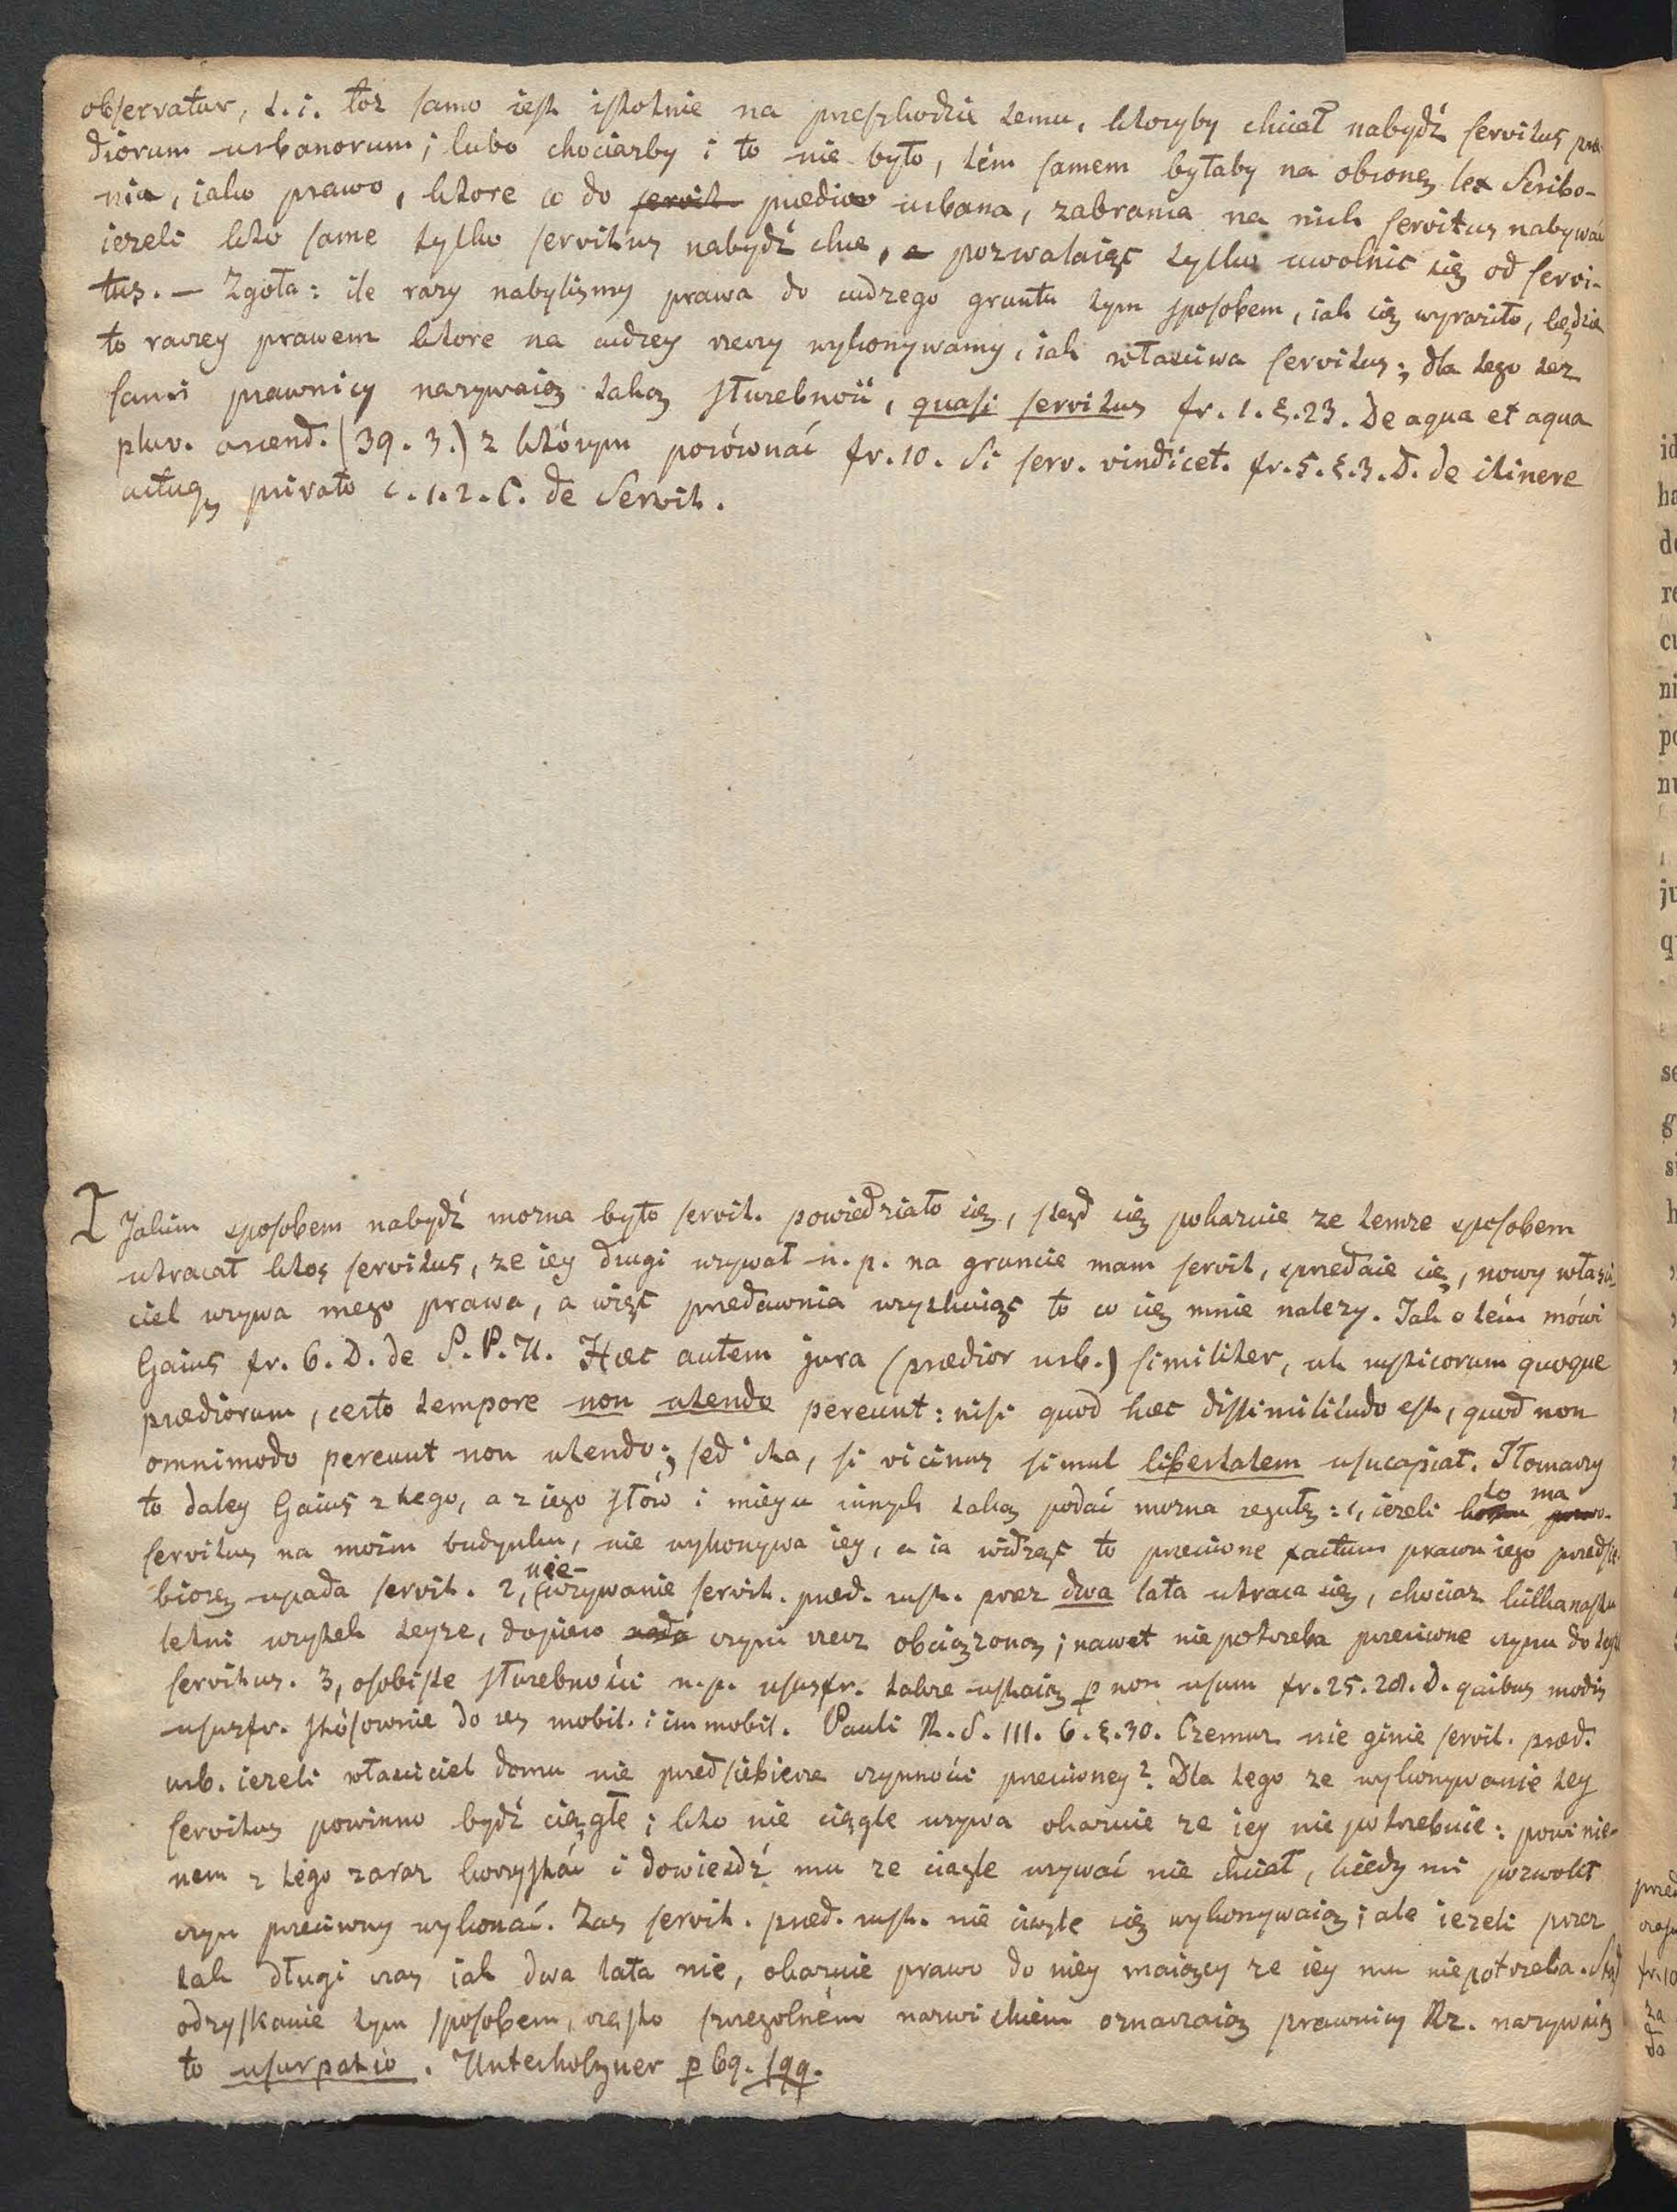 observatur, t. i. toż samo iest istotnie na przeszkodzie temu, ktoryby chciał nabydź servitus præ-
diorum urbanorum; lubo chociażby i to nie było, tém samem byłaby na obronę lex Scribo-
nia, iako prawo, ktore co do servit. prædia urbana, zabrania na nich servitus nabywać
ieżeli kto same tylko servitus nabydź chce, a pozwalaiąc tylko uwolnić się od servi-
tus. — Zgoła: ile razy nabyliśmy prawa do cudzego gruntu tym sposobem, iak się wyraziło, będzie
to raczey prawem ktore na cudzey rzeczy wykonywamy, iak właściwa servitus; dla tego też
sami prawnicy nazywaią taką służebność, quasi servitus fr. 1. §. 23. De aqua et aqua
pluv. arcend. (39. 3.) z którym porównać fr. 10. Si serv. vindicet. fr. 5. §. 3. D. de itinere
actuq, privato c. 1. 2. C. de Servit.
I Jakim sposobem nabydź można było servit. powiedziało się, stąd się pokazuie że temże sposobem
utracał ktoś servitus, że iey drugi używał n. p. na gruncie mam servit, sprzedaie się, nowy właści-
ciel używa mego prawa, a więc przedawnia wszystko to co się mnie należy. Jak o tém mówi
Gaius fr. 6. D. de S. P. U. Hæc autem jura (prædior urb.) similiter, ut rusticorum quoque
prædiorum, certo tempore non utendo pereunt: nisi quod hæc dissimilitudo est, quod non
omnimodo pereunt non utendo; sed ita, si vicinus simul libertatem usucapiat. Tłomaczy
to daley Gaius z tego, a z iego słów i mieysc innych taką podać można regułę: 1, ieżeli kto ma
servitus na moim budynku, nie wykonywa iey, a ia widząc to przeciwne factum prawu iego przedsię-
biorę upada servit. 2, nieużywanie servit. præd. rust. przez dwa lata utraca się, chociaż kilkanasto
letni użytek teyże, dopiero czyni rzecz obciążoną; nawet nie potrzeba przeciwne czynu do tey
servitus. 3, osobiste służebności n. p. ususfr. także ustaią p non usum fr. 25. 28. D. quibus modis
ususfr. stósownie do res mobil. i immobil. Pauli R. S. III. 6. §. 30. Czemuż nie ginie servit. præd.
urb. ieżeli właściciel domu nie przedsiebierze czynności przeciwney? Dla tego że wykonywanie tey
servitus powinno bydź ciągłe; kto nie ciągle używa okazuie że iey nie potrzebuie: powinie-
nem z tego zaraz korzystać i dowieśdź mu że ciągle używać nie chciał, kiedy mi pozwolił
czyn przeciwny wykonać. Zaś servit. præd. rust. nie ciągle się wykonywaią; ale ieżeli przez
tak długi czas iak dwa lata nie, okazuie prawo do niey maiący że iey mu nie potrzeba. Stąd
odzyskanie tym sposobem, często szczególném nazwiskiem oznaczaią prawnicy Rz. nazywaią
to usurpatio. Unterholzner p 69. sqq.